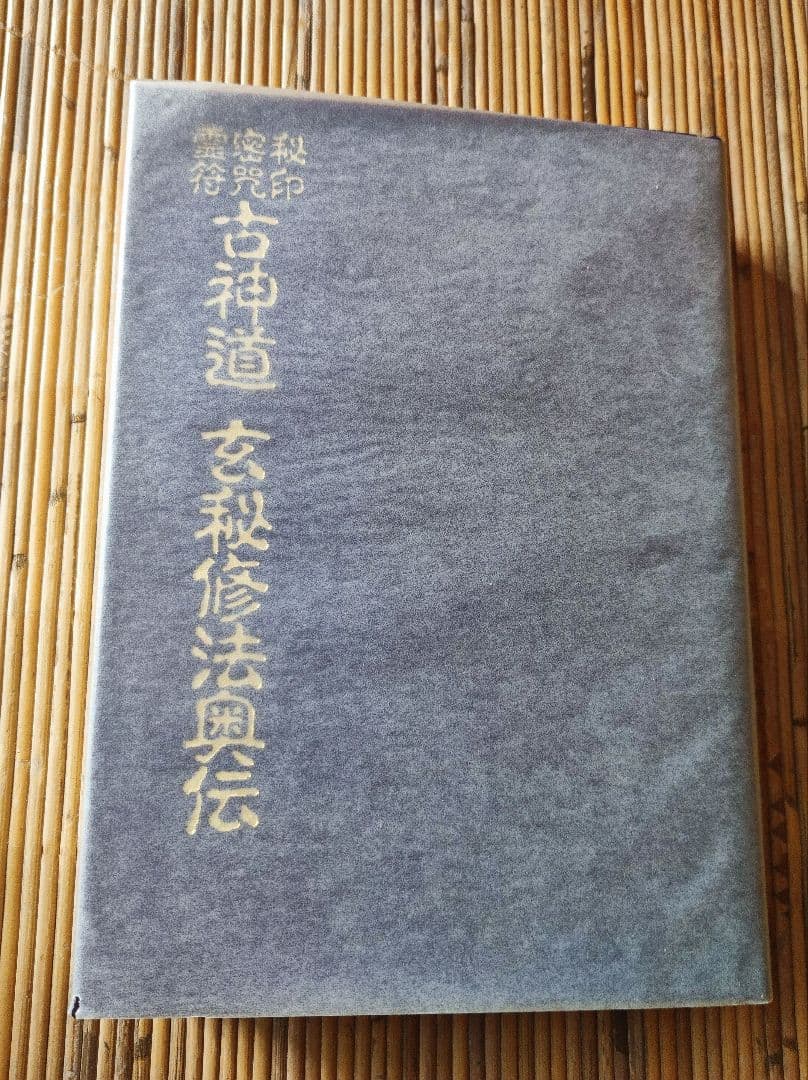 秘印
密咒
靈符
古神道 玄秘修法奥伝